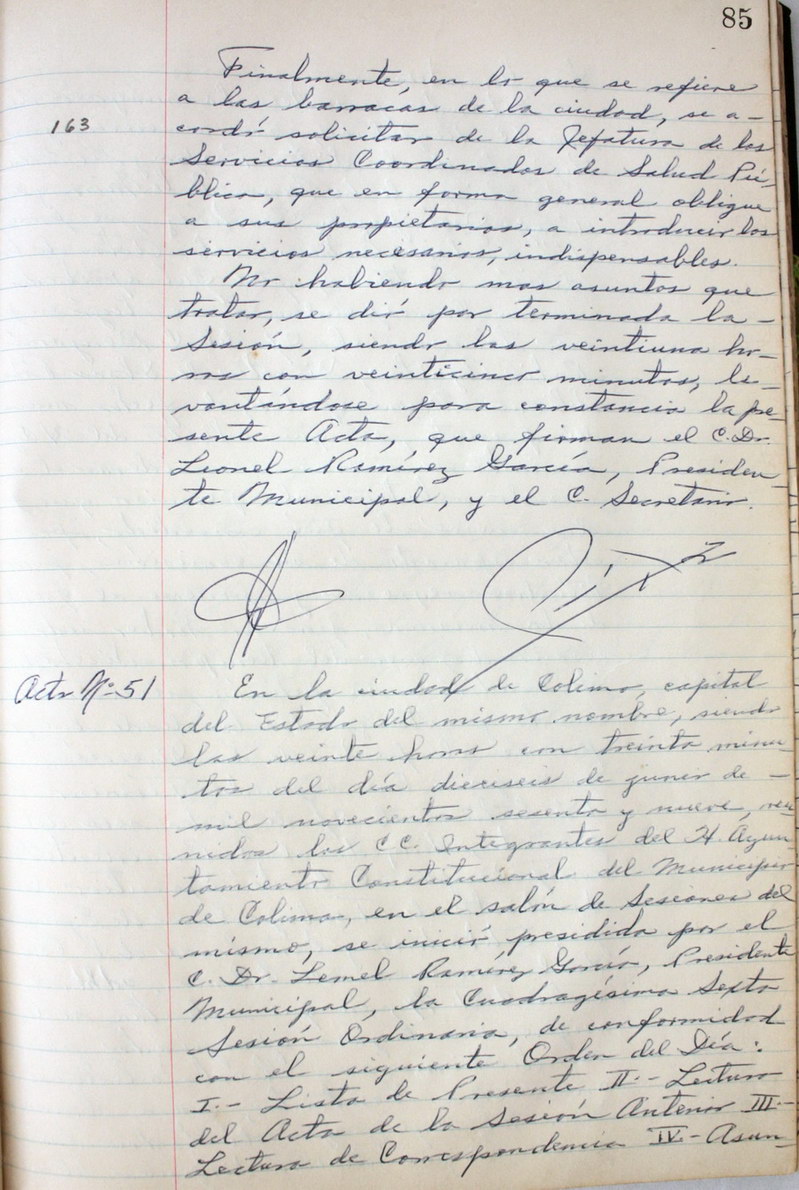 85
Finalmente, en lo que se refiere
a las barracas de la ciudad, se a-
163
cordó solicitar de la Jefatura de los
Servicios Coordinados de Salud Pú-
blica, que en forma general obligue
a sus propietarios, a introducir los
servicios necesarios, indispensables.
No habiendo mas asuntos que
tratar, se dió por terminada la -
Sesión, siendo las veintiuna ho-
ras con veinticinco minutos, le-
vantándose para constancia la pre-
sente Acta, que firman el C. Dr.
Lionel Ramírez García, Presiden-
te Municipal, y el C. Secretario.
Acta Nº 51
En la ciudad de Colima, capital
del Estado del mismo nombre, siendo
las veinte horas con treinta minu-
tos del día dieciseis de junio de -
mil novecientos sesenta y nueve, reu-
nidos los CC. Integrantes del H. Ayun-
tamiento Constitucional del Municipio
de Colima, en el salón de Sesiones del
mismo, se inició presidida por el
C. Dr. Lemel Ramírez García, Presidente
Municipal, la Cuadragésima Sexta
Sesión Ordinaria, de conformidad
con el siguiente Orden del Día:
I.- Lista de Presente II.- Lectura
del Acta de la Sesión Anterior III.-
Lectura de Correspondencia IV.- Asun-